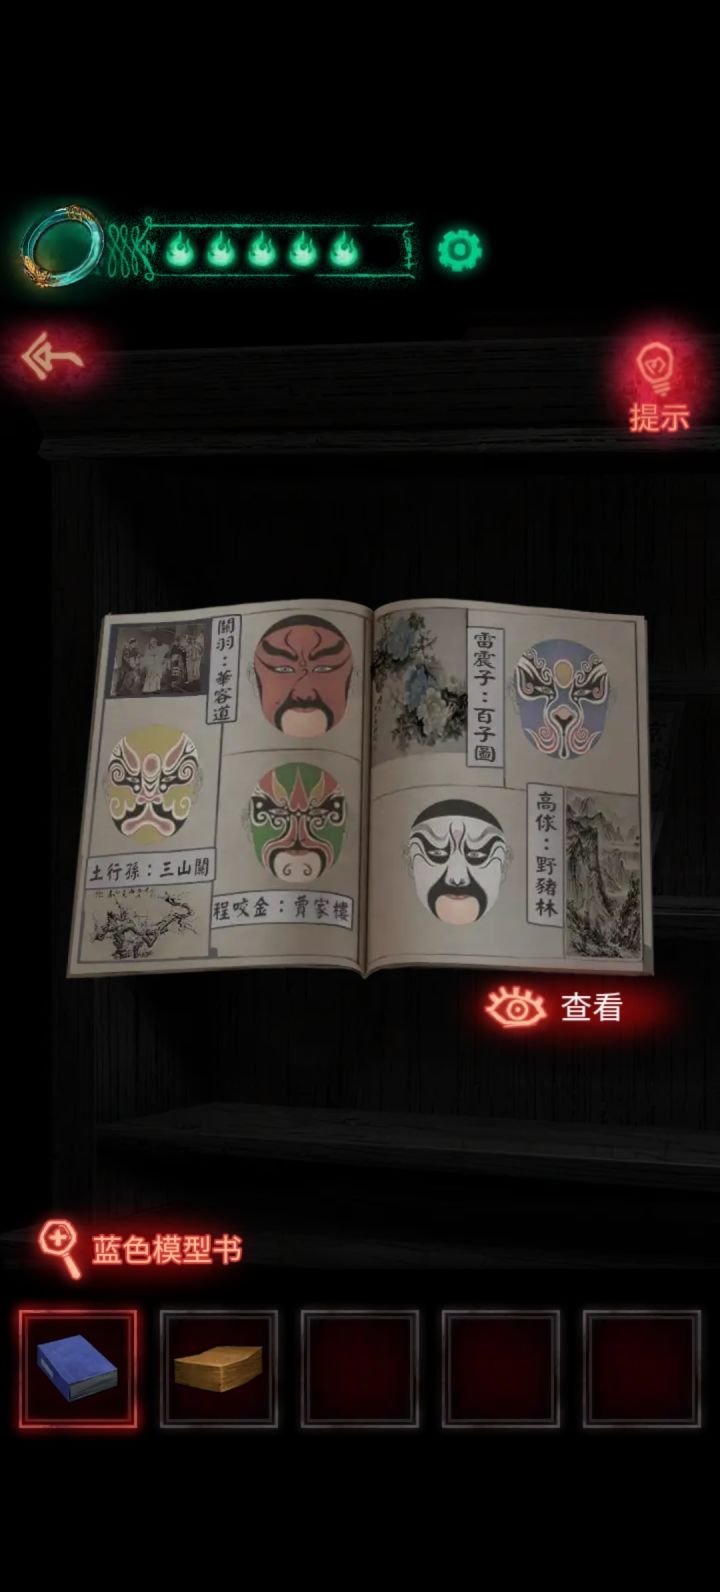 提示
關羽：華容道
土行孫：三山關
程咬金：賈家樓
雷震子：百子圖
高俅：野豬林
查看
蓝色模型书